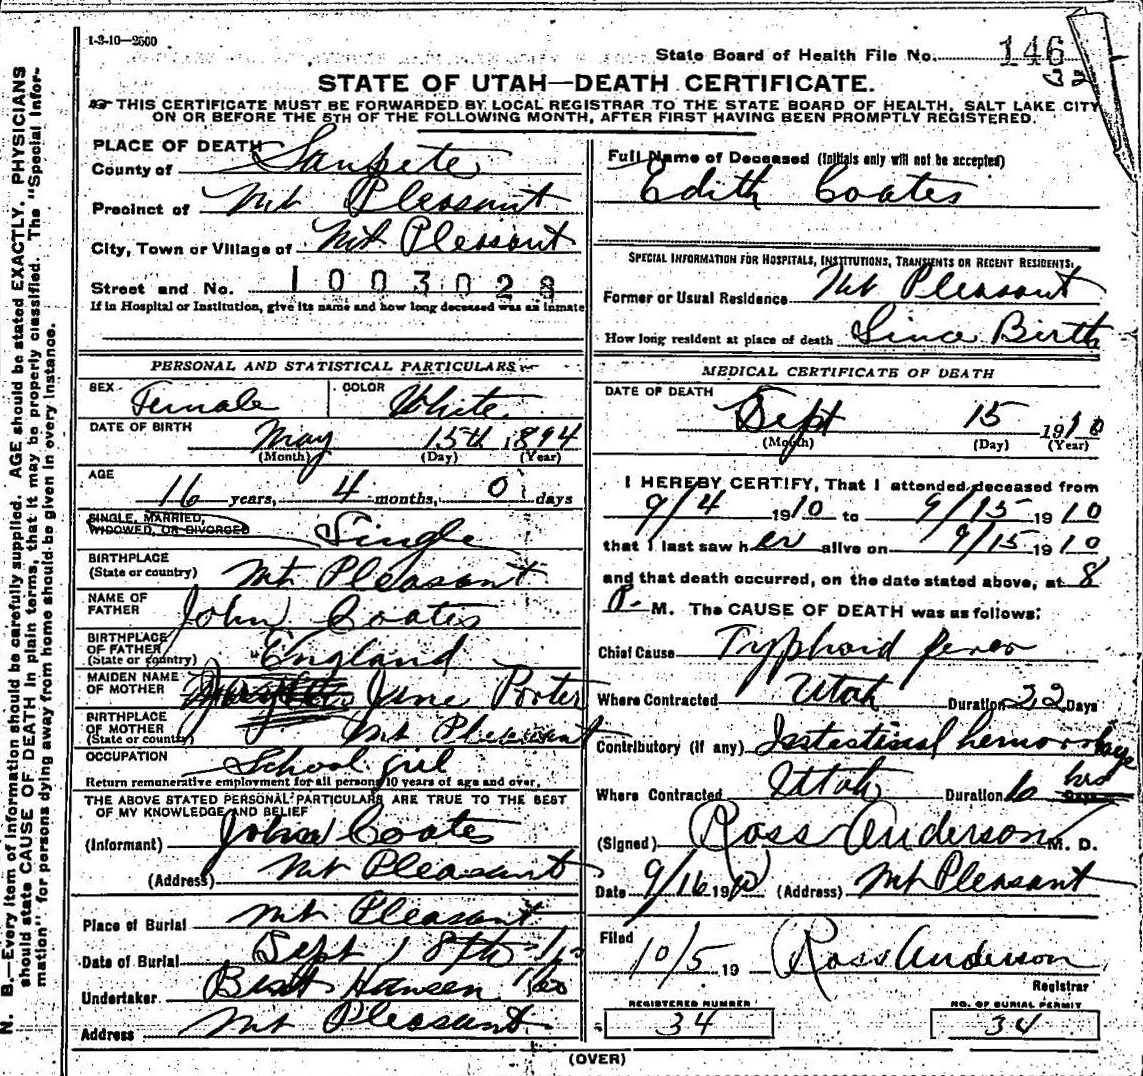 1-3-10—2500
State Board of Health File No. 146
32
STATE OF UTAH—DEATH CERTIFICATE.
THIS CERTIFICATE MUST BE FORWARDED BY LOCAL REGISTRAR TO THE STATE BOARD OF HEALTH, SALT LAKE CITY,
ON OR BEFORE THE 5TH OF THE FOLLOWING MONTH, AFTER FIRST HAVING BEEN PROMPTLY REGISTERED.
N. B.—Every item of information should be carefully supplied. AGE should be stated EXACTLY. PHYSICIANS
should state CAUSE OF DEATH in plain terms, that it may be properly classified. The "Special Infor-
mation" for persons dying away from home should be given in every instance.
PLACE OF DEATH
County of Sanpete
Precinct of Mt Pleasant
City, Town or Village of Mt Pleasant
Street and No. 1003028
If in Hospital or Institution, give its name and how long deceased was an inmate
PERSONAL AND STATISTICAL PARTICULARS
SEX Female COLOR White
DATE OF BIRTH May 15th 1894
(Month) (Day) (Year)
AGE
16 years, 4 months, 0 days
SINGLE, MARRIED,
WIDOWED, OR DIVORCED Single
BIRTHPLACE
(State or country) Mt Pleasant
NAME OF
FATHER John Coates
BIRTHPLACE
OF FATHER
(State or country) England
MAIDEN NAME
OF MOTHER Jane Porter
BIRTHPLACE
OF MOTHER
(State or country) Mt Pleasant
OCCUPATION School girl
Return remunerative employment for all persons 10 years of age and over.
THE ABOVE STATED PERSONAL PARTICULARS ARE TRUE TO THE BEST
OF MY KNOWLEDGE AND BELIEF
(Informant) John Coates
(Address) Mt Pleasant
Place of Burial Mt Pleasant
Date of Burial Sept 18th
Undertaker Hansen
Address Mt Pleasant
Full Name of Deceased (Initials only will not be accepted)
Edith Coates
SPECIAL INFORMATION FOR HOSPITALS, INSTITUTIONS, TRANSIENTS OR RECENT RESIDENTS:
Former or Usual Residence Mt Pleasant
How long resident at place of death Since Birth
MEDICAL CERTIFICATE OF DEATH
DATE OF DEATH
Sept 15 1910
(Month) (Day) (Year)
I HEREBY CERTIFY, That I attended deceased from
9/4 1910 to 9/15 1910
that I last saw her alive on 9/15 1910
and that death occurred, on the date stated above, at 8
P. M. The CAUSE OF DEATH was as follows:
Chief Cause Typhoid fever
Where Contracted Utah Duration 32 Days
Contributory (if any) Intestinal hemorrhage
Where Contracted Utah Duration hrs Days
(Signed) Ross Anderson M. D.
Date 9/16 1910 (Address) Mt Pleasant
Filed
10/5 19 Ross Anderson
Registrar
REGISTERED NUMBER
34
NO. OF BURIAL PERMIT
34
(OVER)